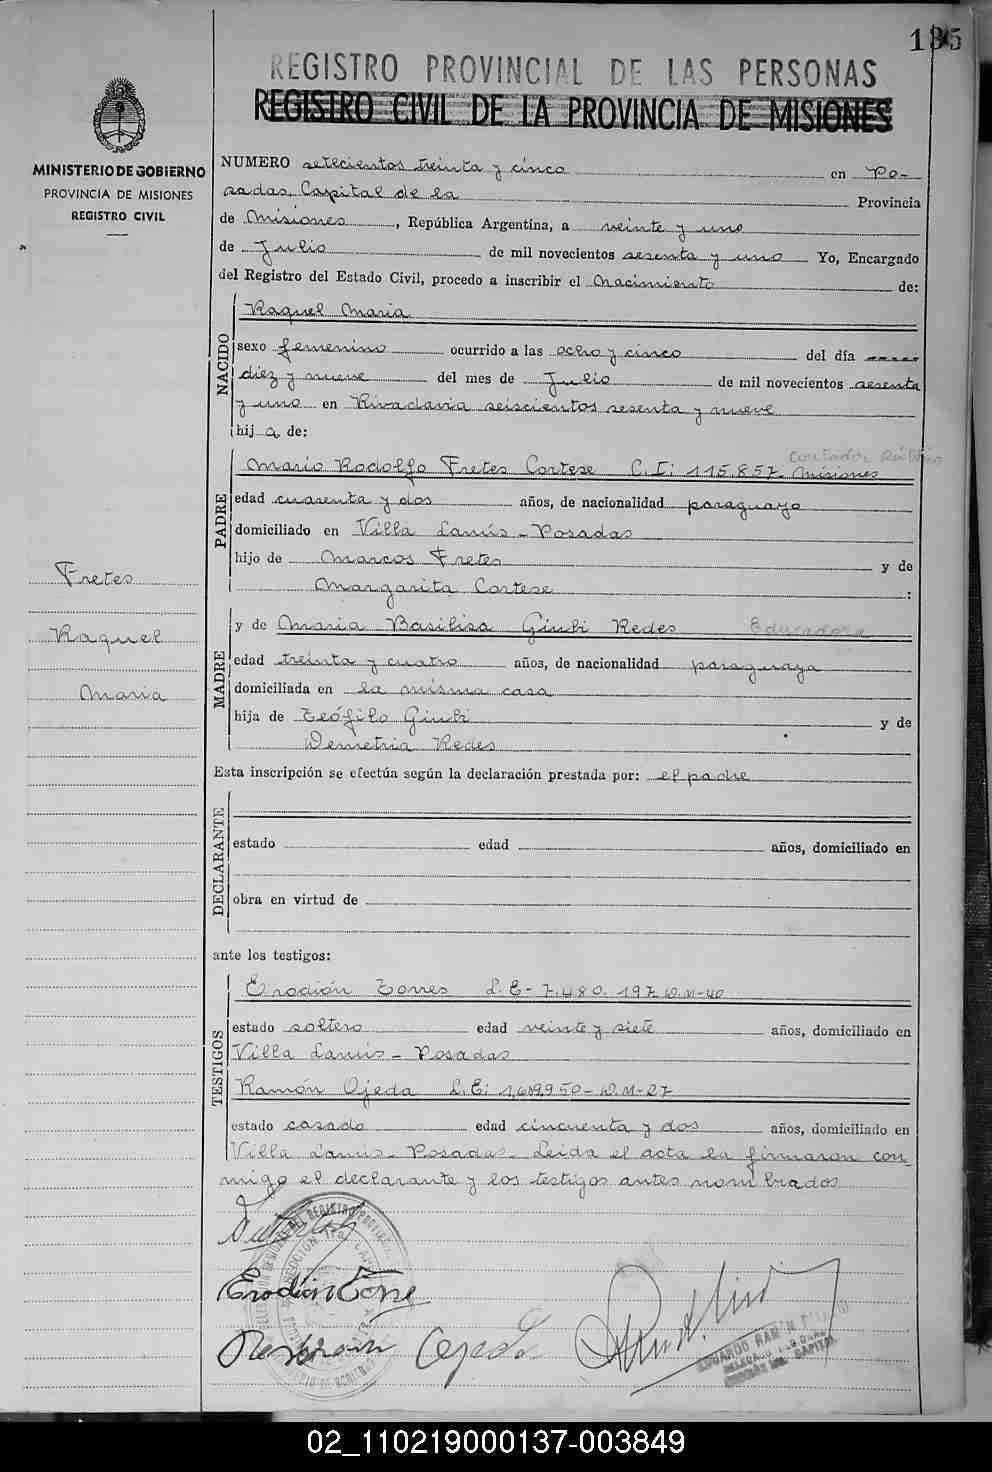 135
REGISTRO PROVINCIAL DE LAS PERSONAS
REGISTRO CIVIL DE LA PROVINCIA DE MISIONES
MINISTERIO DE GOBIERNO
PROVINCIA DE MISIONES
REGISTRO CIVIL
NUMERO setecientos treinta y cinco en Po-
sadas, Capital de la Provincia
de Misiones, República Argentina, a veinte y uno
de Julio de mil novecientos sesenta y uno Yo, Encargado
del Registro del Estado Civil, procedo a inscribir el nacimiento de:
NACIDO
Raquel Maria
sexo femenino ocurrido a las ocho y cinco del día
diez y nueve del mes de Julio de mil novecientos sesenta
y uno en Rivadavia seiscientos sesenta y nueve
hij a de:
PADRE
Contador Público
Mario Rodolfo Fretes Cortese C.I: 115.857 Misiones
edad cuarenta y dos años, de nacionalidad paraguayo
domiciliado en Villa Lanús - Posadas
hijo de Marcos Fretes y de
Margarita Cortese :
Fretes
Raquel
Maria
MADRE
y de Maria Basilisa Giubi Redes Educadora
edad treinta y cuatro años, de nacionalidad paraguaya
domiciliada en la misma casa
hija de Teófilo Giubi y de
Demetria Redes
Esta inscripción se efectúa según la declaración prestada por: el padre
DECLARANTE
estado edad años, domiciliado en
obra en virtud de
ante los testigos:
TESTIGOS
Erodión Torres L.E- 7.480.197 D.M-40
estado soltero edad veinte y siete años, domiciliado en
Villa Lanús - Posadas
Ramón Ojeda L.E: D.M-27
estado casado edad cincuenta y dos años, domiciliado en
Villa Lanús - Posadas - Leida el acta la firmaron con-
migo el declarante y los testigos antes nombrados
Erodión Torre
Ramón Ojeda
EDUARDO RAMÓN
CAPITAL
02_110219000137-003849